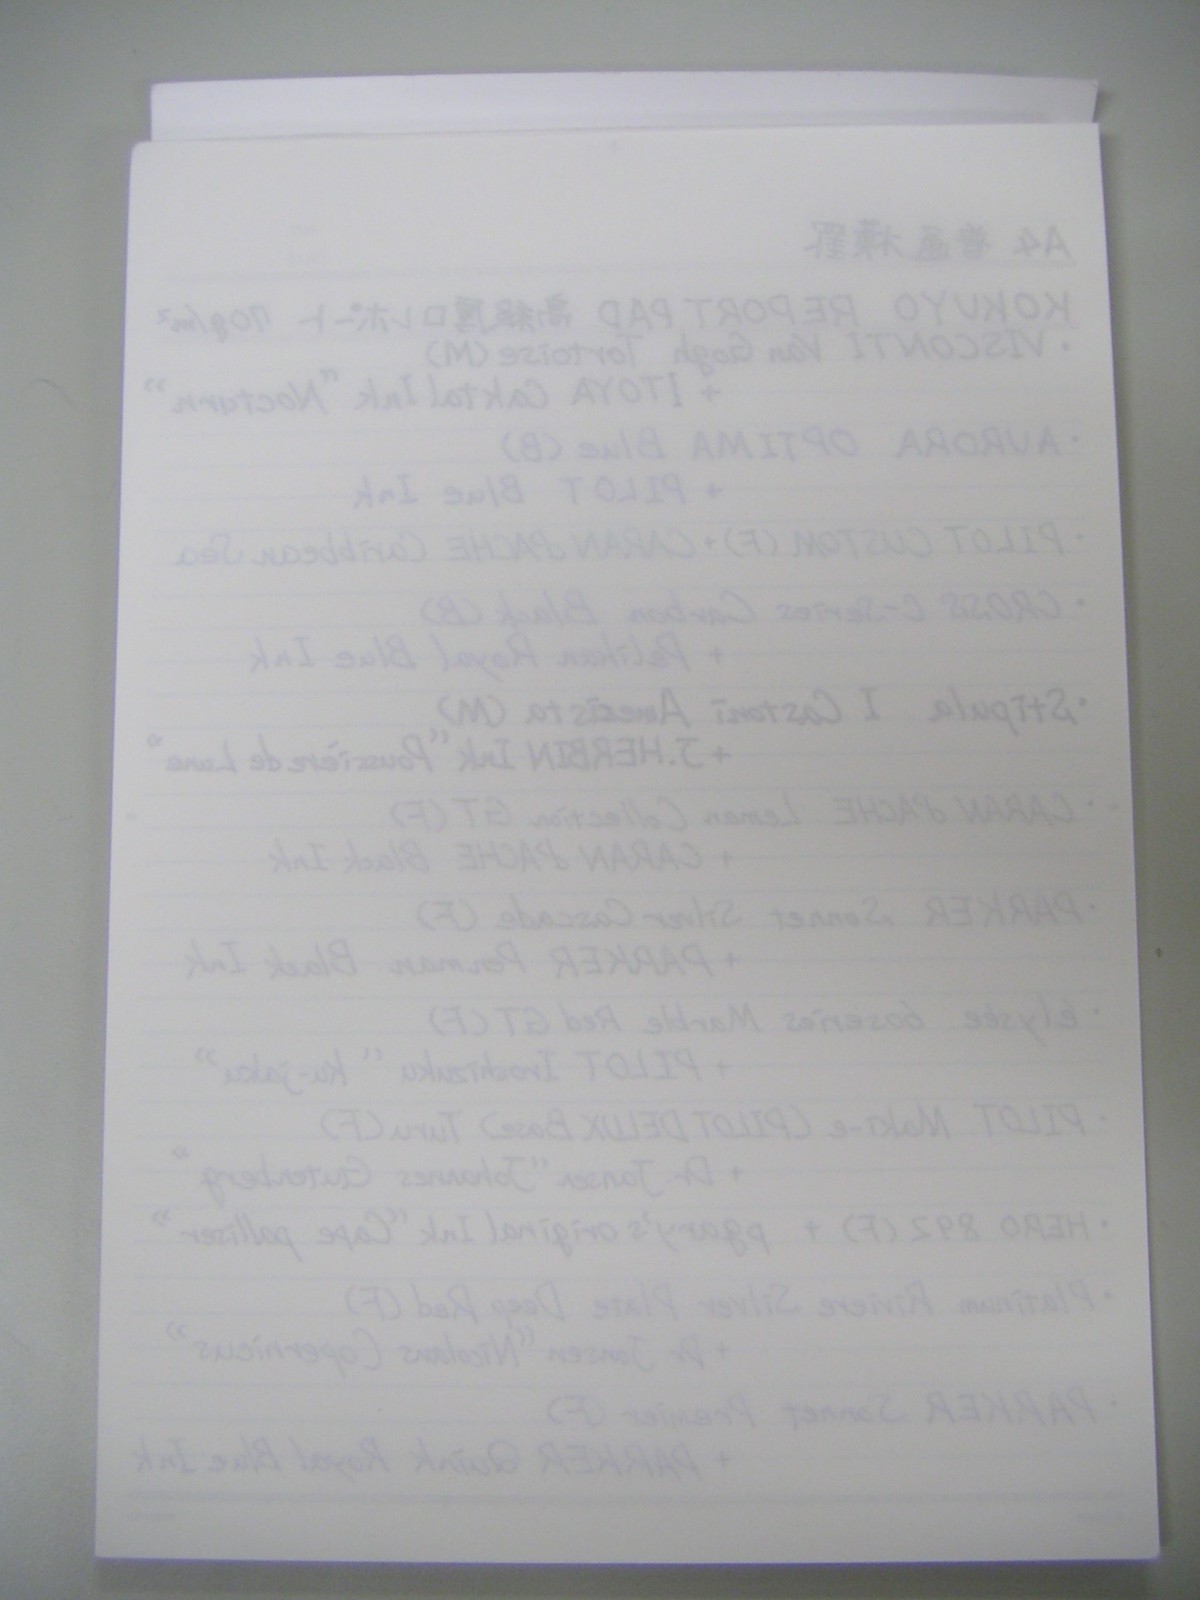 A4 普通大横罫
KOKUYO REPORT PAD 高級厚口レポート 70g/m²
・VISCONTI Van Gogh Tortoise (M)
+ ITOYA Coktal Ink "Nocturn"
・AURORA OPTIMA Blue (B)
+ PILOT Blue Ink
・PILOT CUSTOM (F) + CARAN d'ACHE Caribbean Sea
・CROSS C-Series Carbon Black (B)
+ Pelikan Royal Blue Ink
・Stipula I Castoni Ametista (M)
+ J.HERBIN Ink "Poussière de Lune"
・CARAN d'ACHE Leman Collection GT (F)
+ CARAN d'ACHE Black Ink
・PARKER Sonnet Silver Cascade (F)
+ PARKER Penman Black Ink
・élysée 60series Marble Red GT (F)
+ PILOT Iroshizuku "ku-jaku"
・PILOT Maki-e (PILOT DELUX Base) Turu (F)
+ Dr Jansen "Johannes Gutenberg"
・HERO 892 (F) + pgary's original Ink "Cape palliser"
・Platinum Riviere Silver Plate Deep Red (F)
+ Dr Jansen "Nicolaus Copernicus"
・PARKER Sonnet Premier (F)
+ PARKER Quink Royal Blue Ink